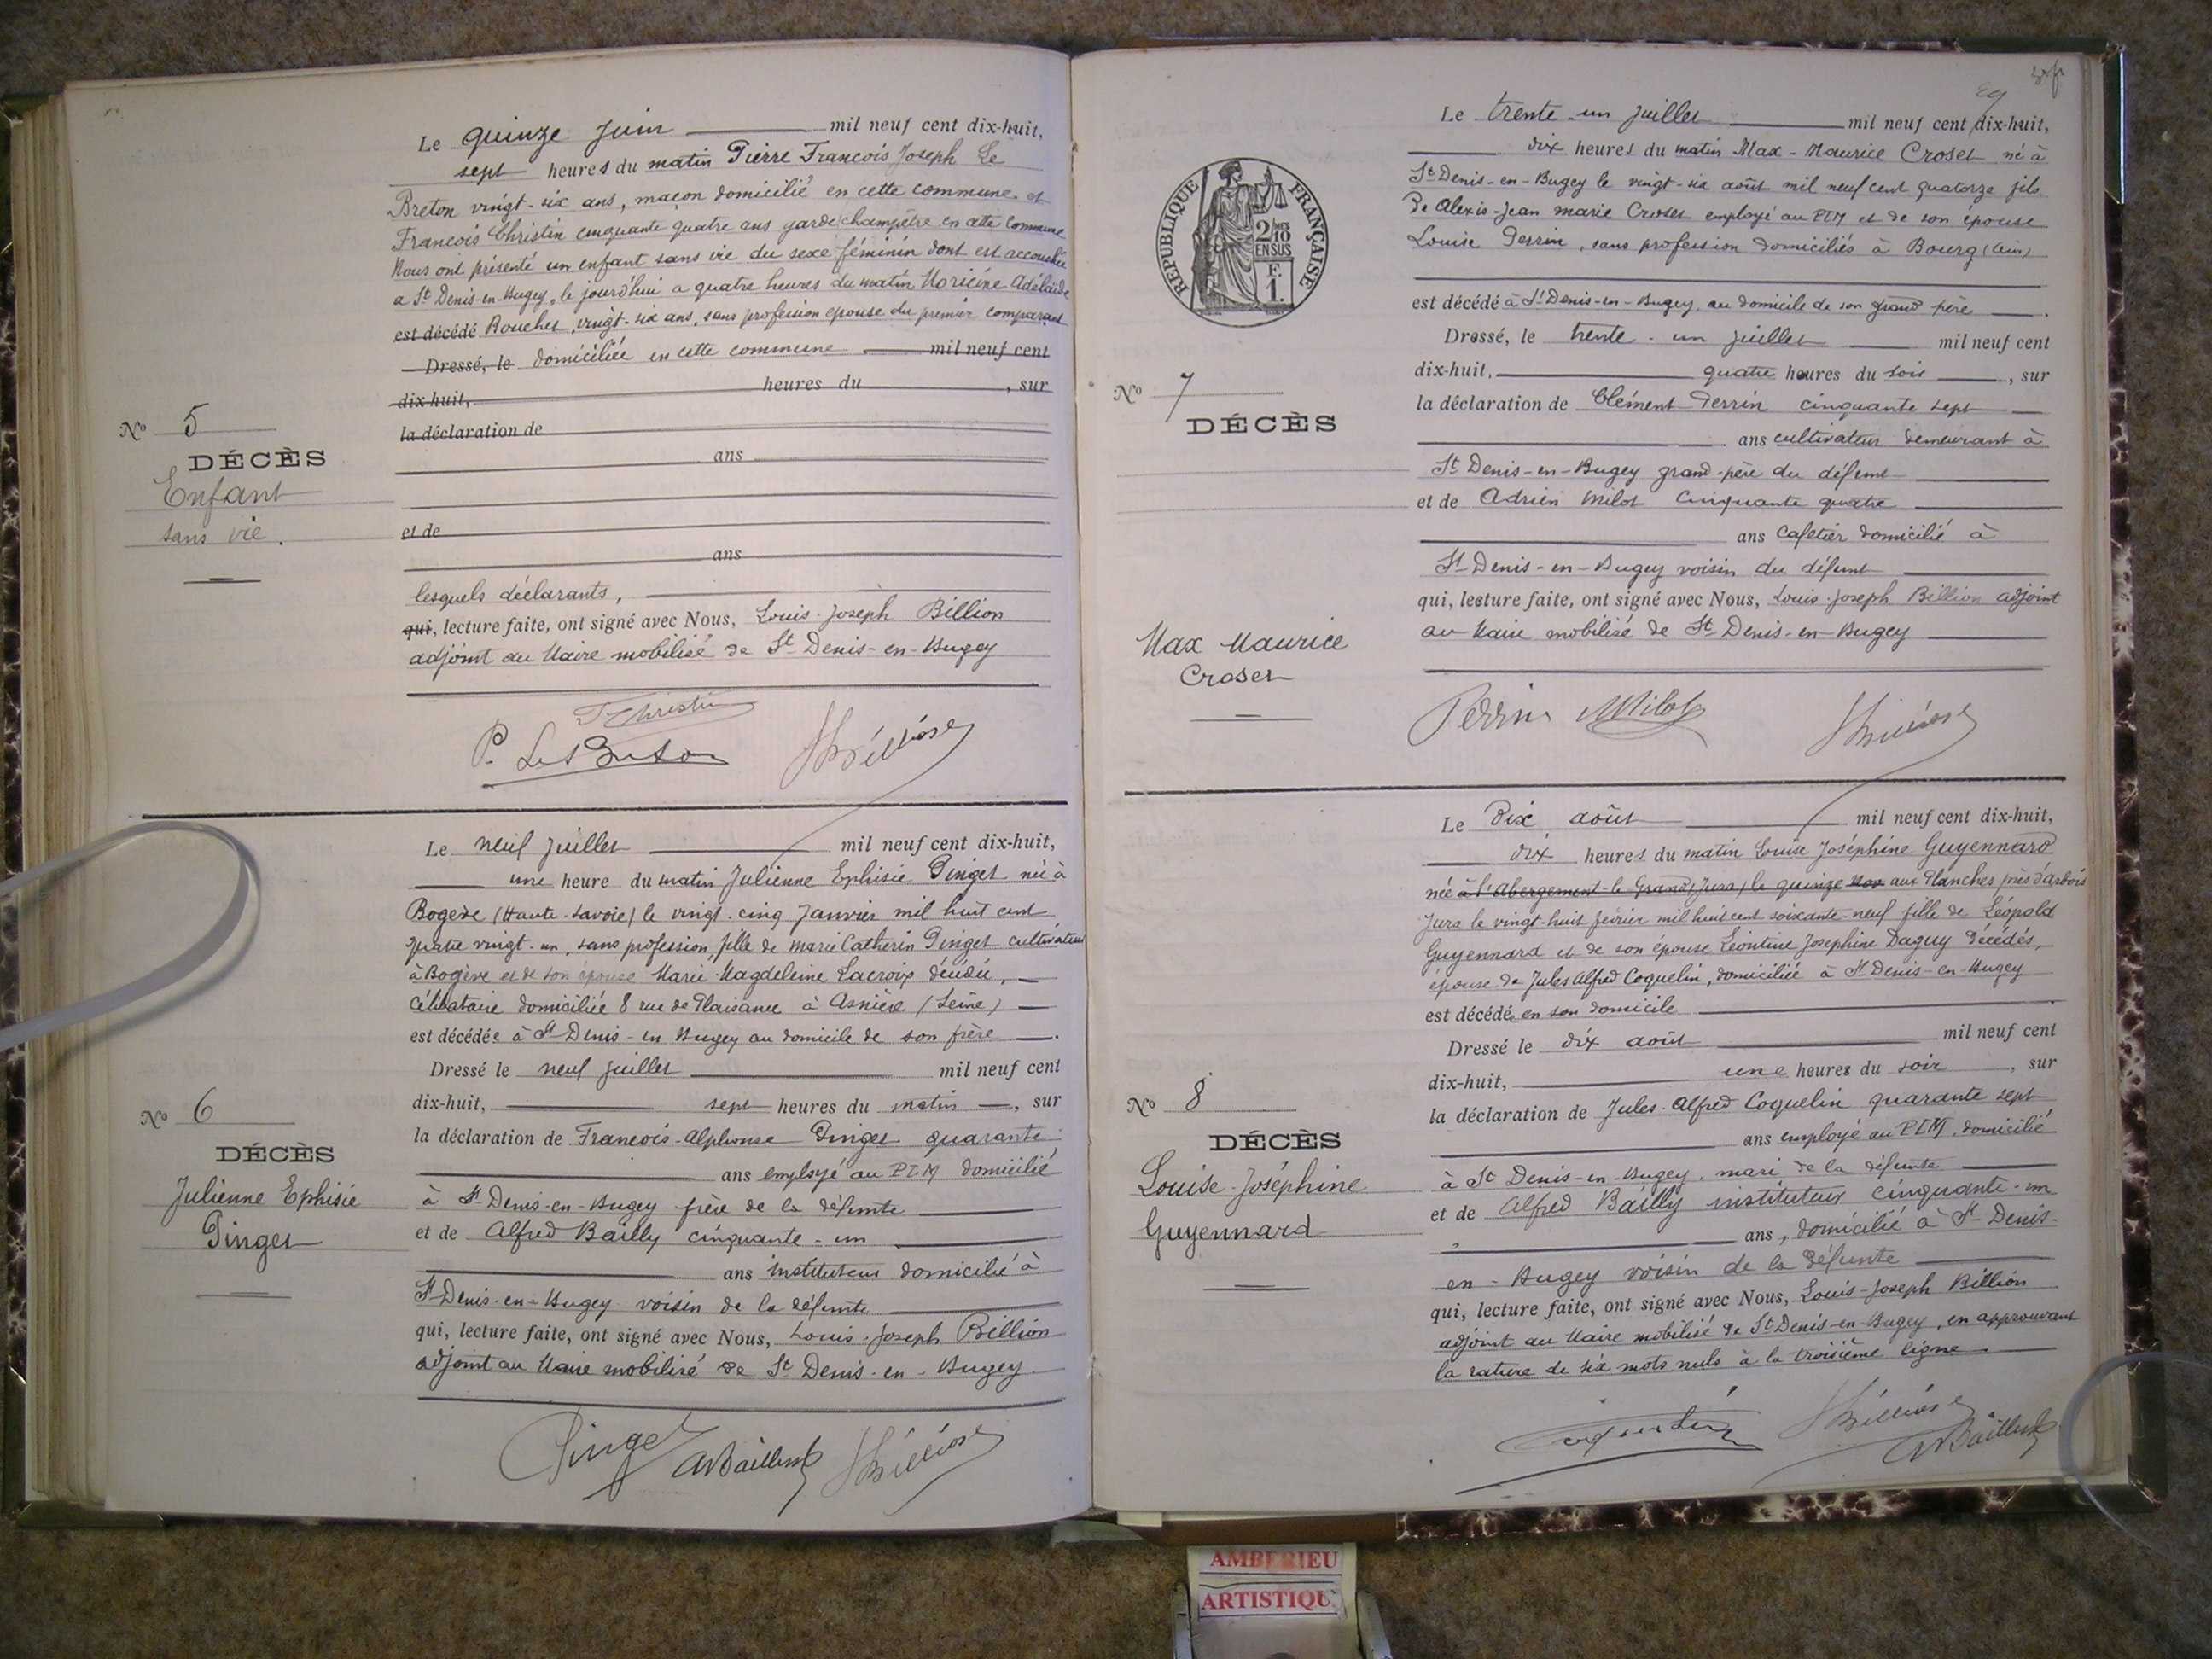 Le quinze Juin mil neuf cent dix-huit,
sept heures du matin Pierre François Joseph Le
Breton vingt-six ans, maçon domicilié en cette commune et
François Christin cinquante quatre ans garde champêtre en cette commune
Nous ont présenté un enfant sans vie du sexe féminin dont est accouchée
a St Denis-en-Bugey, le jourd'hui a quatre heures du matin Adélaïde
est décédé Bouchet, vingt-six ans, sans profession épouse du premier comparant
Dressé, le domiciliée en cette commune mil neuf cent
dix-huit, heures du , sur
la déclaration de
ans
et de
ans
lesquels déclarants,
qui, lecture faite, ont signé avec Nous, Louis-Joseph Billion
adjoint au Maire mobilisé de St Denis-en-Bugey
No 5
DÉCÈS
Enfant
sans vie.
F Christin
P. Le Breton
Le neuf juillet mil neuf cent dix-huit,
une heure du matin Julienne Ephisie Pinget née à
Bogève (Haute-Savoie) le vingt-cinq Janvier mil huit cent
quatre vingt-un, sans profession, fille de Marie Catherin Pinget cultivateur
à Bogève et de son épouse Marie Magdeleine Lacroix décédée,
célibataire domiciliée 8 rue de Plaisance à Asnière (Seine)
est décédée à St Denis-en Bugey au domicile de son frère .
Dressé le neuf juillet mil neuf cent
dix-huit, sept heures du matin , sur
la déclaration de François-Alphonse Pinget quarante
ans employé au PLM domicilié
à St Denis-en-Bugey frère de la défunte
et de Alfred Bailly cinquante-un
ans instituteur domicilié à
St Denis-en-Bugey voisin de la défunte
qui, lecture faite, ont signé avec Nous, Louis-Joseph Billion
adjoint au Maire mobilisé de St Denis-en-Bugey.
No 6
DÉCÈS
Julienne Ephisie
Pinget
Pinget ABailly
Le trente-un juillet mil neuf cent dix-huit,
dix heures du matin Max-Maurice Croset né à
St Denis-en-Bugey le vingt-six août mil neuf cent quatorze fils
De Alexis-Jean Marie Croset employé au PLM et de son épouse
Louise Perrin, sans profession domiciliés à Bourg (Ain)
est décédé à St Denis-en-Bugey, au domicile de son grand père .
Dressé, le trente-un juillet mil neuf cent
dix-huit, quatre heures du soir , sur
la déclaration de Clément Perrin cinquante sept
ans cultivateur demeurant à
St Denis-en-Bugey grand-père du défunt
et de Adrien Milot cinquante quatre
ans cafetier domicilié à
St Denis-en-Bugey voisin du défunt
qui, lecture faite, ont signé avec Nous, Louis-Joseph Billion adjoint
au Maire mobilisé de St Denis-en-Bugey
RÉPUBLIQUE FRANÇAISE
2/10 EN SUS
F. 1.
No 7
DÉCÈS
Max Maurice
Croset
Perrin Milot
Le Dix août mil neuf cent dix-huit,
dix heures du matin Louise Joséphine Guyennard
née à l'Abergement-le Grand (Jura) le quinze Nov aux Planches près d'Arbois
Jura le vingt-huit février mil huit cent soixante-neuf fille de Léopold
Guyennard et de son épouse Léontine Josephine Daguy décédés,
épouse de Jules Alfred Coquelin, domiciliée à St Denis-en-Bugey
est décédée en son domicile
Dressé le dix août mil neuf cent
dix-huit, une heures du soir , sur
la déclaration de Jules-Alfred Coquelin quarante sept
ans employé au PLM, domicilié
à St Denis-en-Bugey, mari de la défunte
et de Alfred Bailly instituteur cinquante-un
ans, domicilié à St Denis-
en-Bugey voisin de la défunte
qui, lecture faite, ont signé avec Nous, Louis-Joseph Billion
adjoint au Maire mobilisé de St Denis-en-Bugey, en approuvant
la rature de six mots nuls à la troisième ligne
No 8
DÉCÈS
Louise-Joséphine
Guyennard
Coquelin
ABailly
AMBERIEU
ARTISTIQU